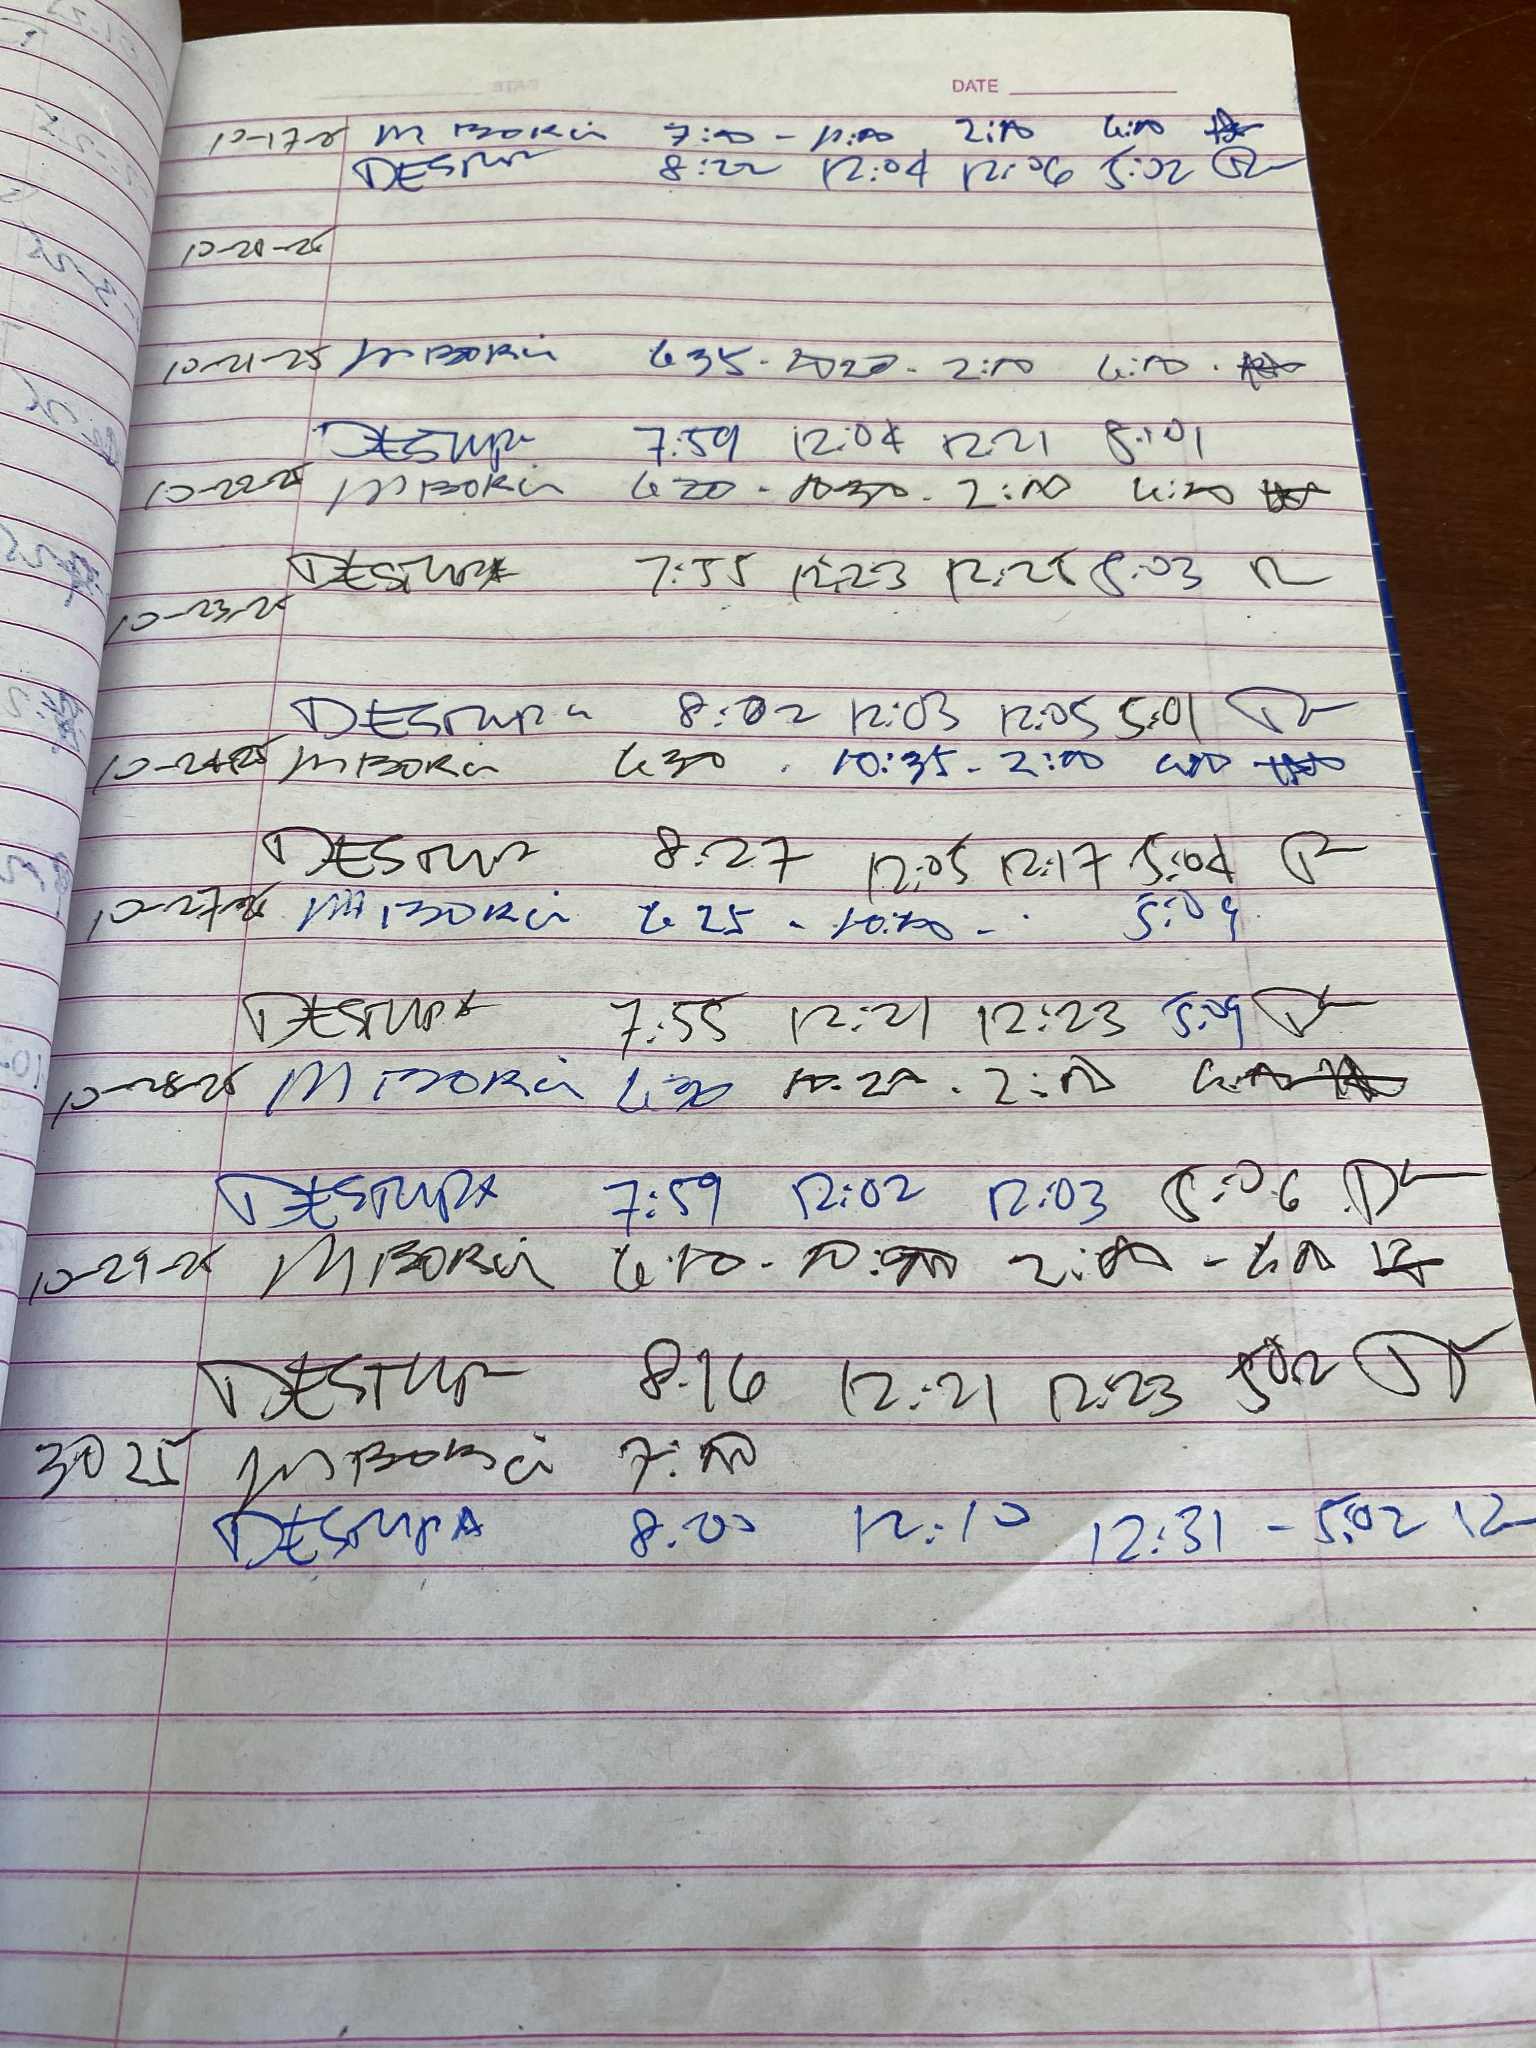 DATE
10-17-25 M BORCI 7:00 - 11:00 2:00 6:00
DESTUPA 8:22 12:04 12:06 5:02
10-20-25
10-21-25 M BORCI 6 35 - - 2:00 6:00 -
DESTUPA 7:59 12:04 12:21 5:01
10-22-25 M BORCI 6 20 - 10 30 - 2:00
DESTUPA 7:55 12:23 12:25 5:03
10-23-25
DESTUPA 8:02 12:03 12:05 5:01
10-24-25 M BORCI 6 30 - 10:35 - 2:00 6:00
DESTUPA 8:27 12:05 12:17 5:04
10-27-25 M BORCI 6 25 - 10:00 - 5:09
DESTUPA 7:55 12:21 12:23 5:09
10-28-25 M BORCI 6:30 10:20 - 2:00
DESTUPA 7:59 12:02 12:03 5:06
10-29-25 M BORCI 6:10 - 2:00 - 6:00
DESTUPA 8:16 12:21 12:23 5:02
30 25 M BORCI 7:00
DESTUPA 8:00 12:10 12:31 - 5:02